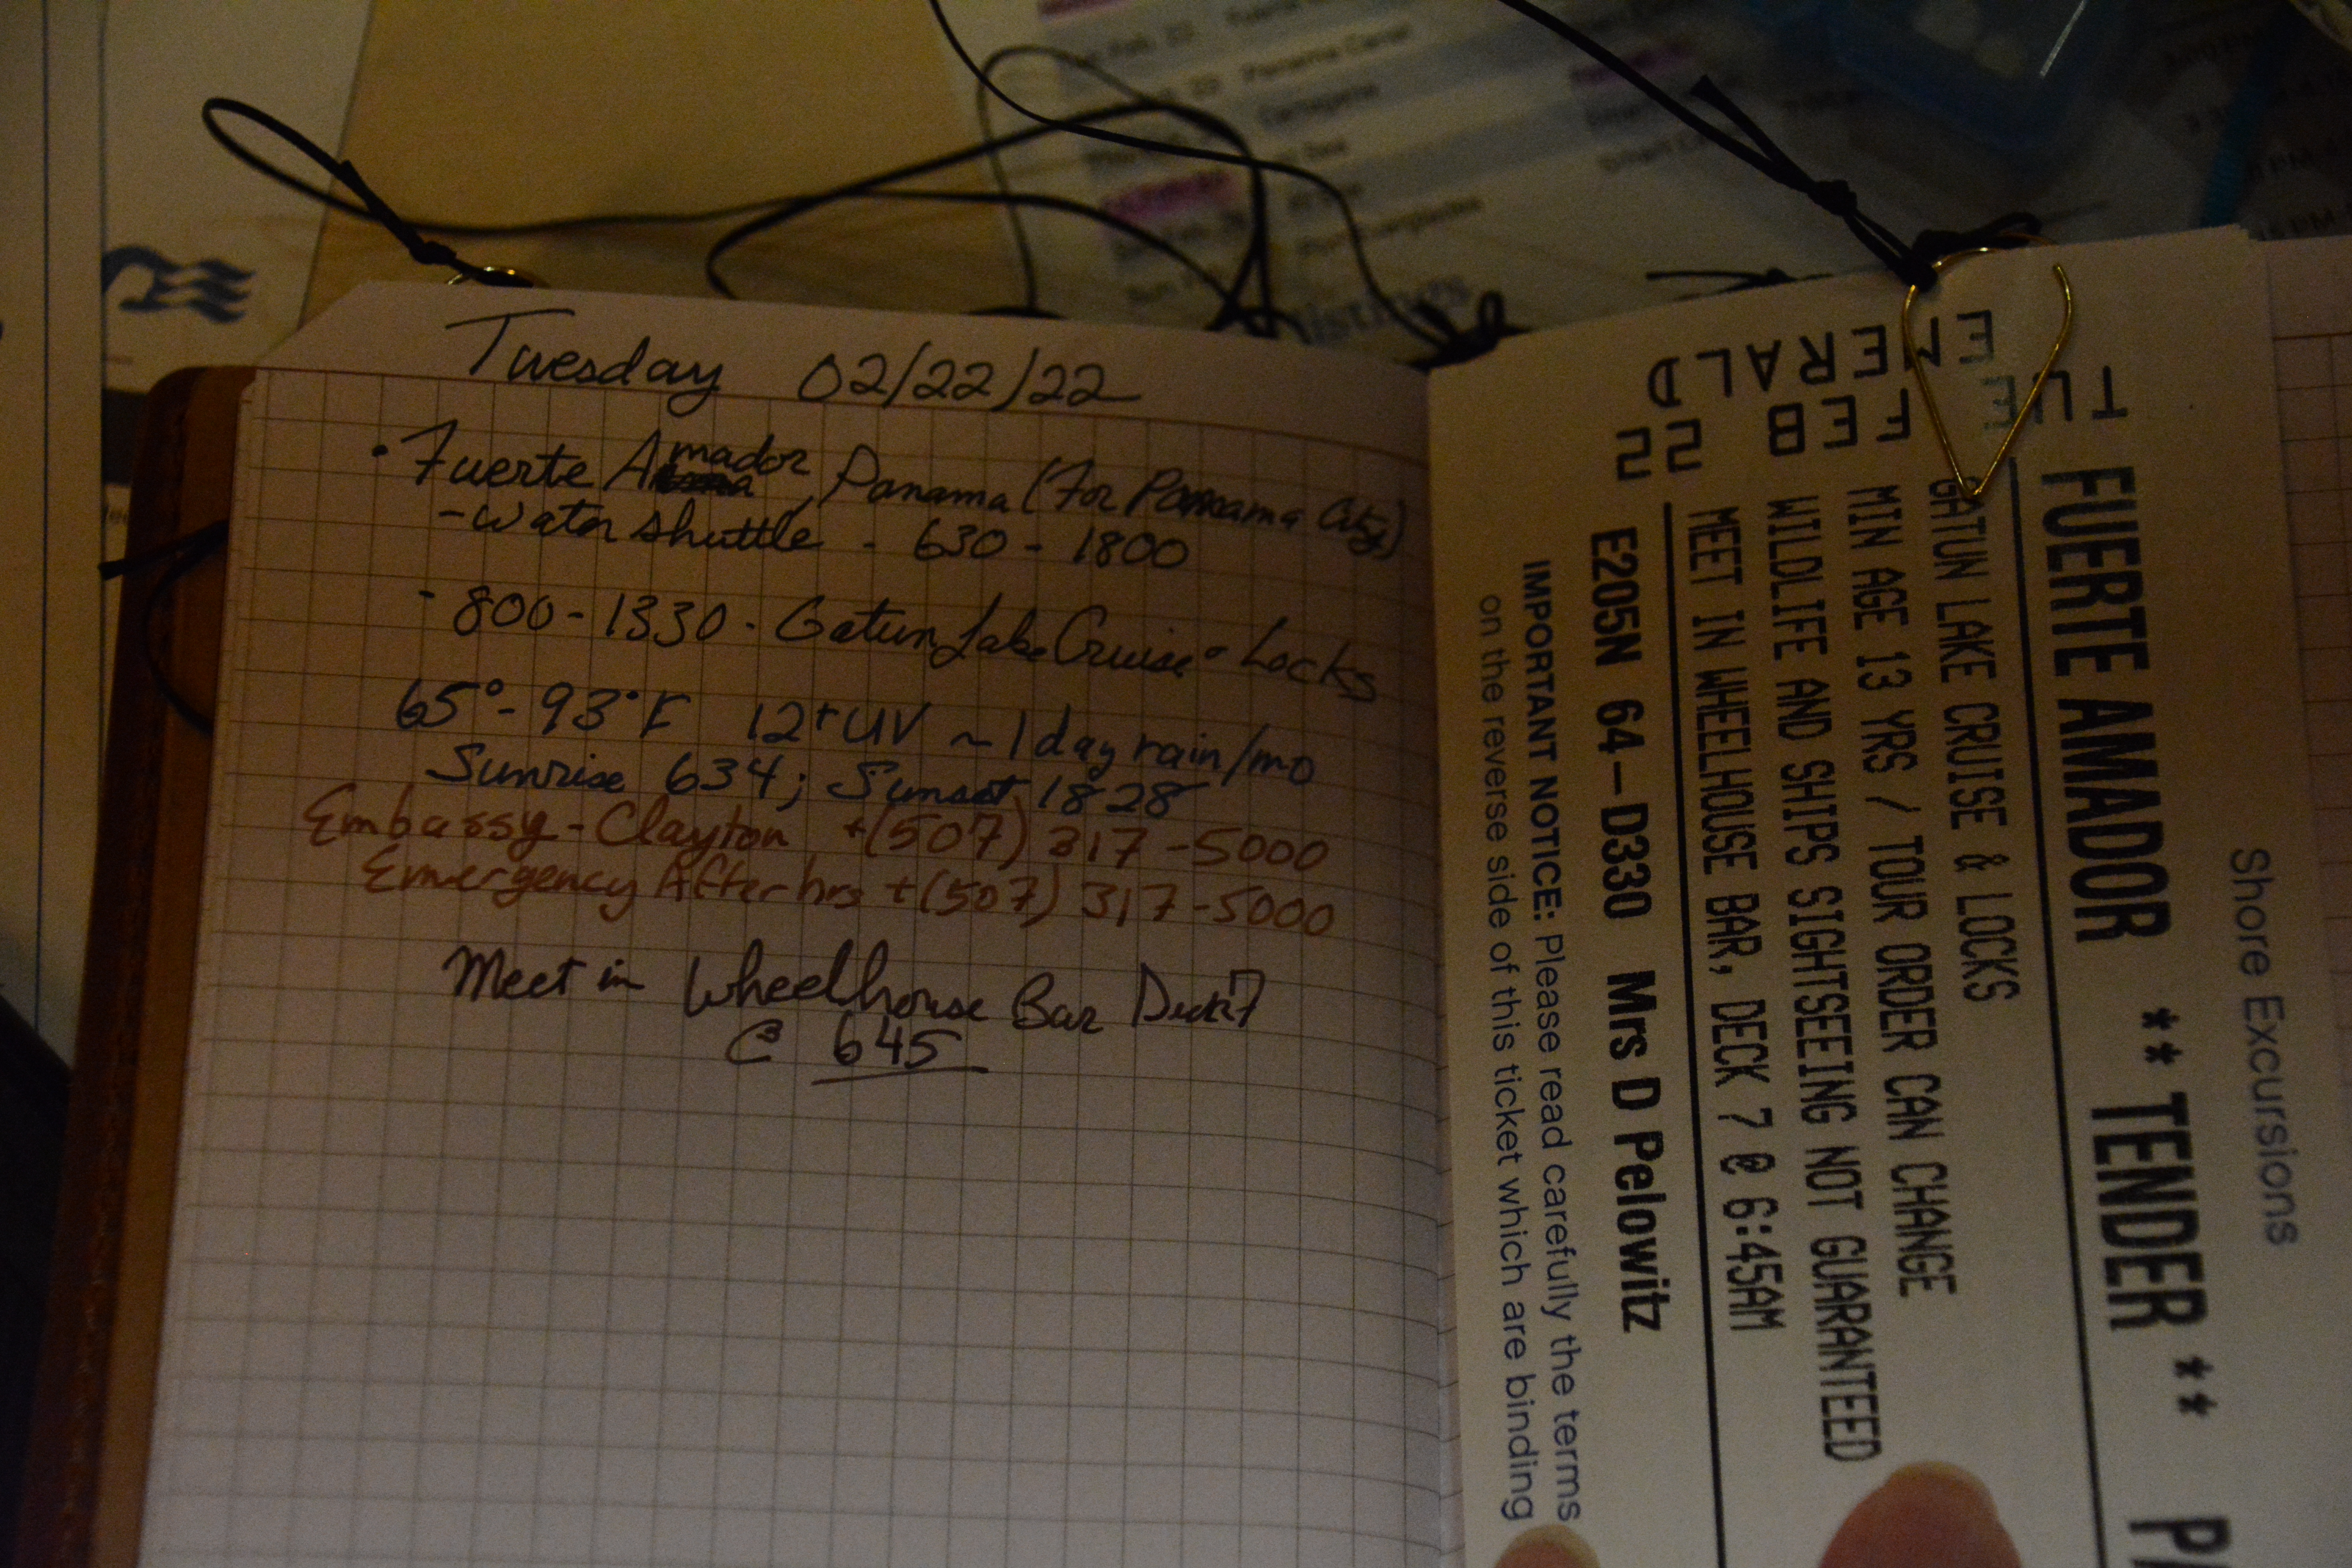 Tuesday 02/22/22
· Fuerte Amador, Panama (For Panama City)
- Water shuttle - 630 - 1800
- 800 - 1330 - Gatun Lake Cruise & Locks
65° - 93° F 12+ UV ~ 1 day rain/mo
Sunrise 634; Sunset 1828
Embassy - Clayton +(507) 317-5000
Emergency After hrs +(507) 317-5000
Meet in Wheelhouse Bar Deck 7
@ 645
Shore Excursions
FUERTE AMADOR ** TENDER **
GATUN LAKE CRUISE & LOCKS
MIN AGE 13 YRS / TOUR ORDER CAN CHANGE
WILDLIFE AND SHIPS SIGHTSEEING NOT GUARANTEED
MEET IN WHEELHOUSE BAR, DECK 7 @ 6:45AM
E205N 64-D330 Mrs D Pelowitz
IMPORTANT NOTICE: Please read carefully the terms
on the reverse side of this ticket which are binding
TUE
FEB 22
EMERALD
Panama Canal
Cartagena